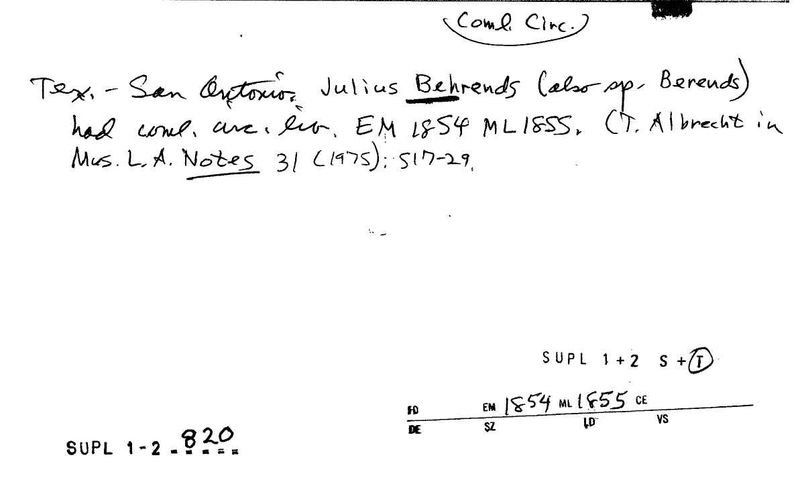 Coml. Circ.
Tex. - San Antonio. Julius Behrends (also sp. Berends)
had coml. circ. lib. EM 1854 ML 1855. (T. Albrecht in
Mus. L. A. Notes 31 (1975): 517-29.
SUPL 1+2 S+T
FD EM 1854 ML 1855 CE
DE SZ LD VS
SUPL 1-2 820